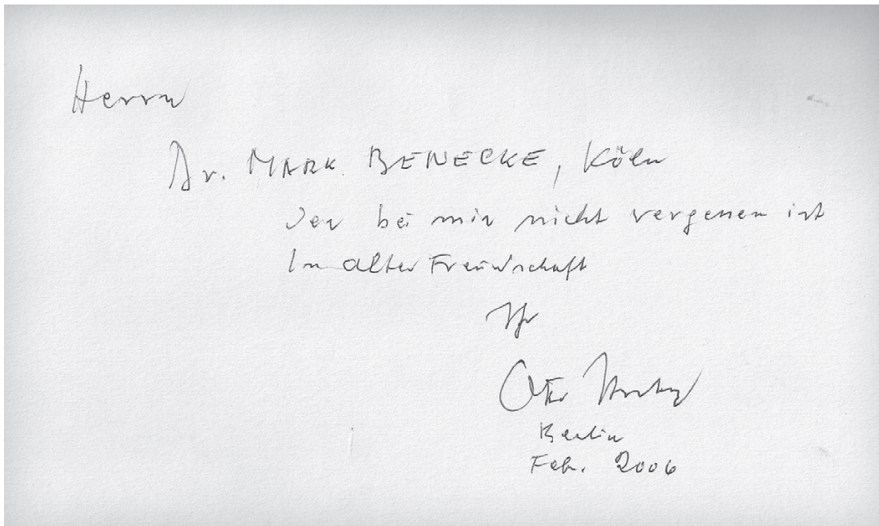 Herrn
Dr. MARK BENECKE, Köln
der bei mir nicht vergessen ist
In alter Freundschaft
Ihr
Otto Prokop
Berlin
Feb. 2006